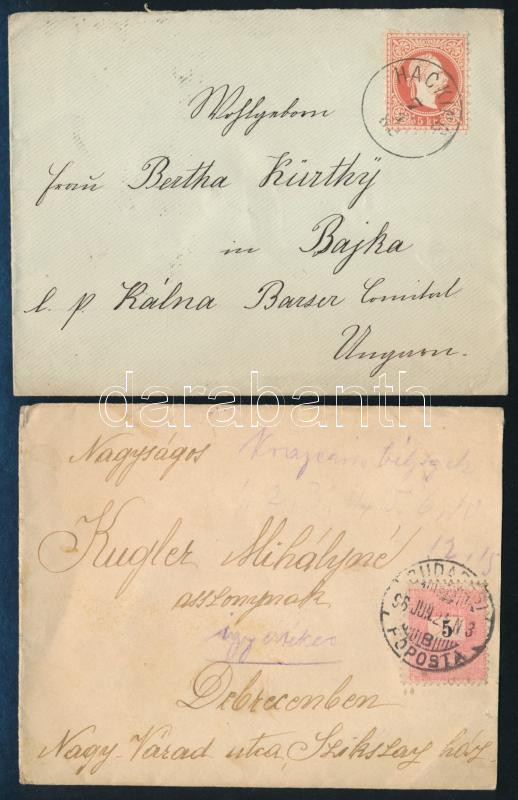 HACK
5 kr
Wohlgeborn
Frau Bertha Kürthy
in Bajka
l. p. Kálna Barser Comitat
Ungarn.
darabanth
Nagyságos
Krajcáros bélyegek
Kugler Mihályné
12, 15
asszonynak
BUDAPEST
5
FŐPOSTA
Debreczenben
Nagy-Várad utca, Szikszay ház.